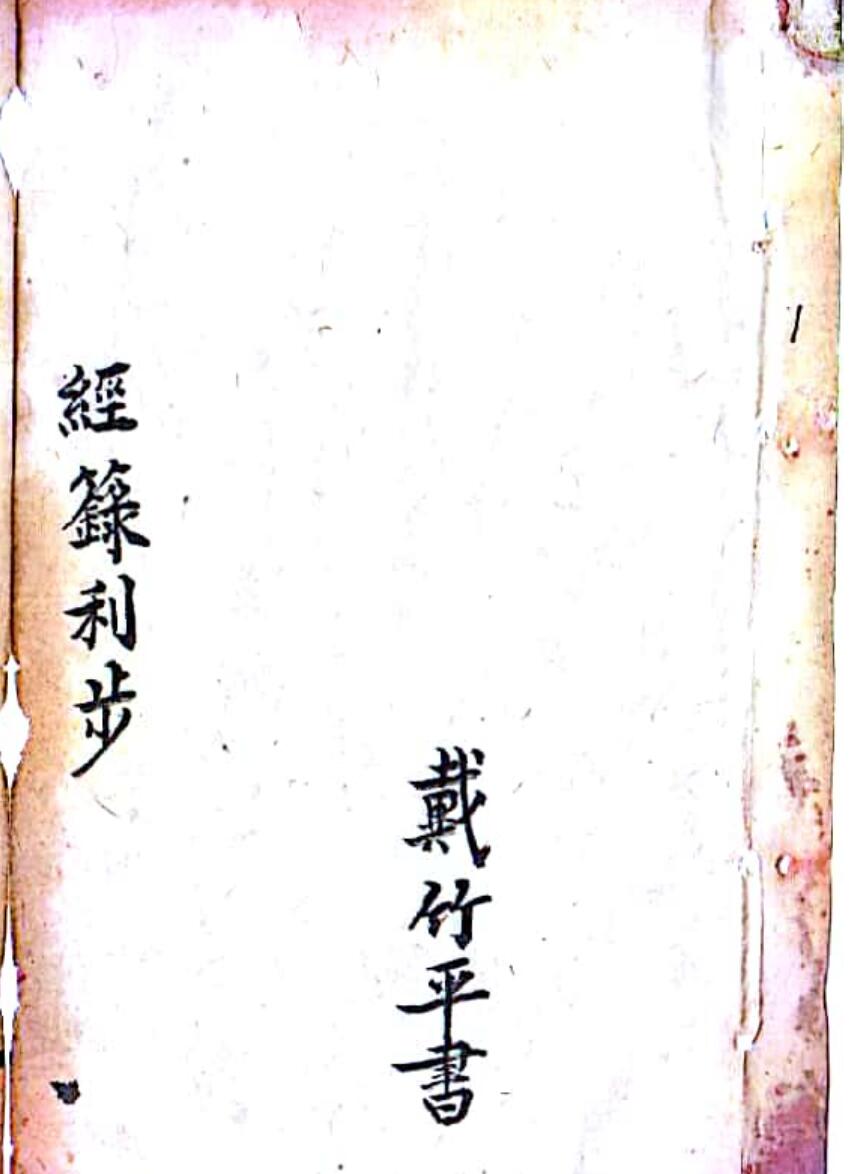 戴竹平書
經籙利步